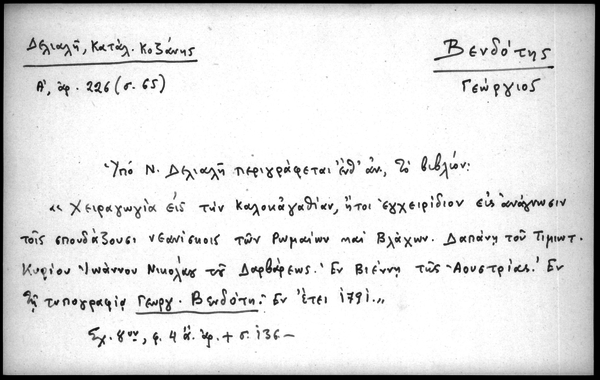 Δελιαλῆ, Κατάλ. Κοζάνης
Βενδότης
Α', ἀρ. 226 (σ. 65)
Γεώργιος
Ὑπό Ν. Δελιαλῆ περιγράφεται ἐνθ' ἀν, τό βιβλίον:
"Χειραγωγία εἰς τήν καλοκἀγαθίαν, ἤτοι ἐγχειρίδιον εἰς ἀνάγνωσιν
τοῖς σπουδάζουσι νεανίσκοις τῶν Ρωμαίων καί Βλάχων. Δαπάνῃ τοῦ Τιμιωτ.
Κυρίου Ἰωάννου Νικολάου τοῦ Δαρβάρεως. Ἐν Βιέννῃ τῆς Ἀουστρίας. Ἐν
τῇ τυπογραφίᾳ Γεωργ. Βενδότη. Ἐν ἔτει 1791."
Σχ. 8ον, φ. 4 ἄ. ἀρ. + σ. 136 –